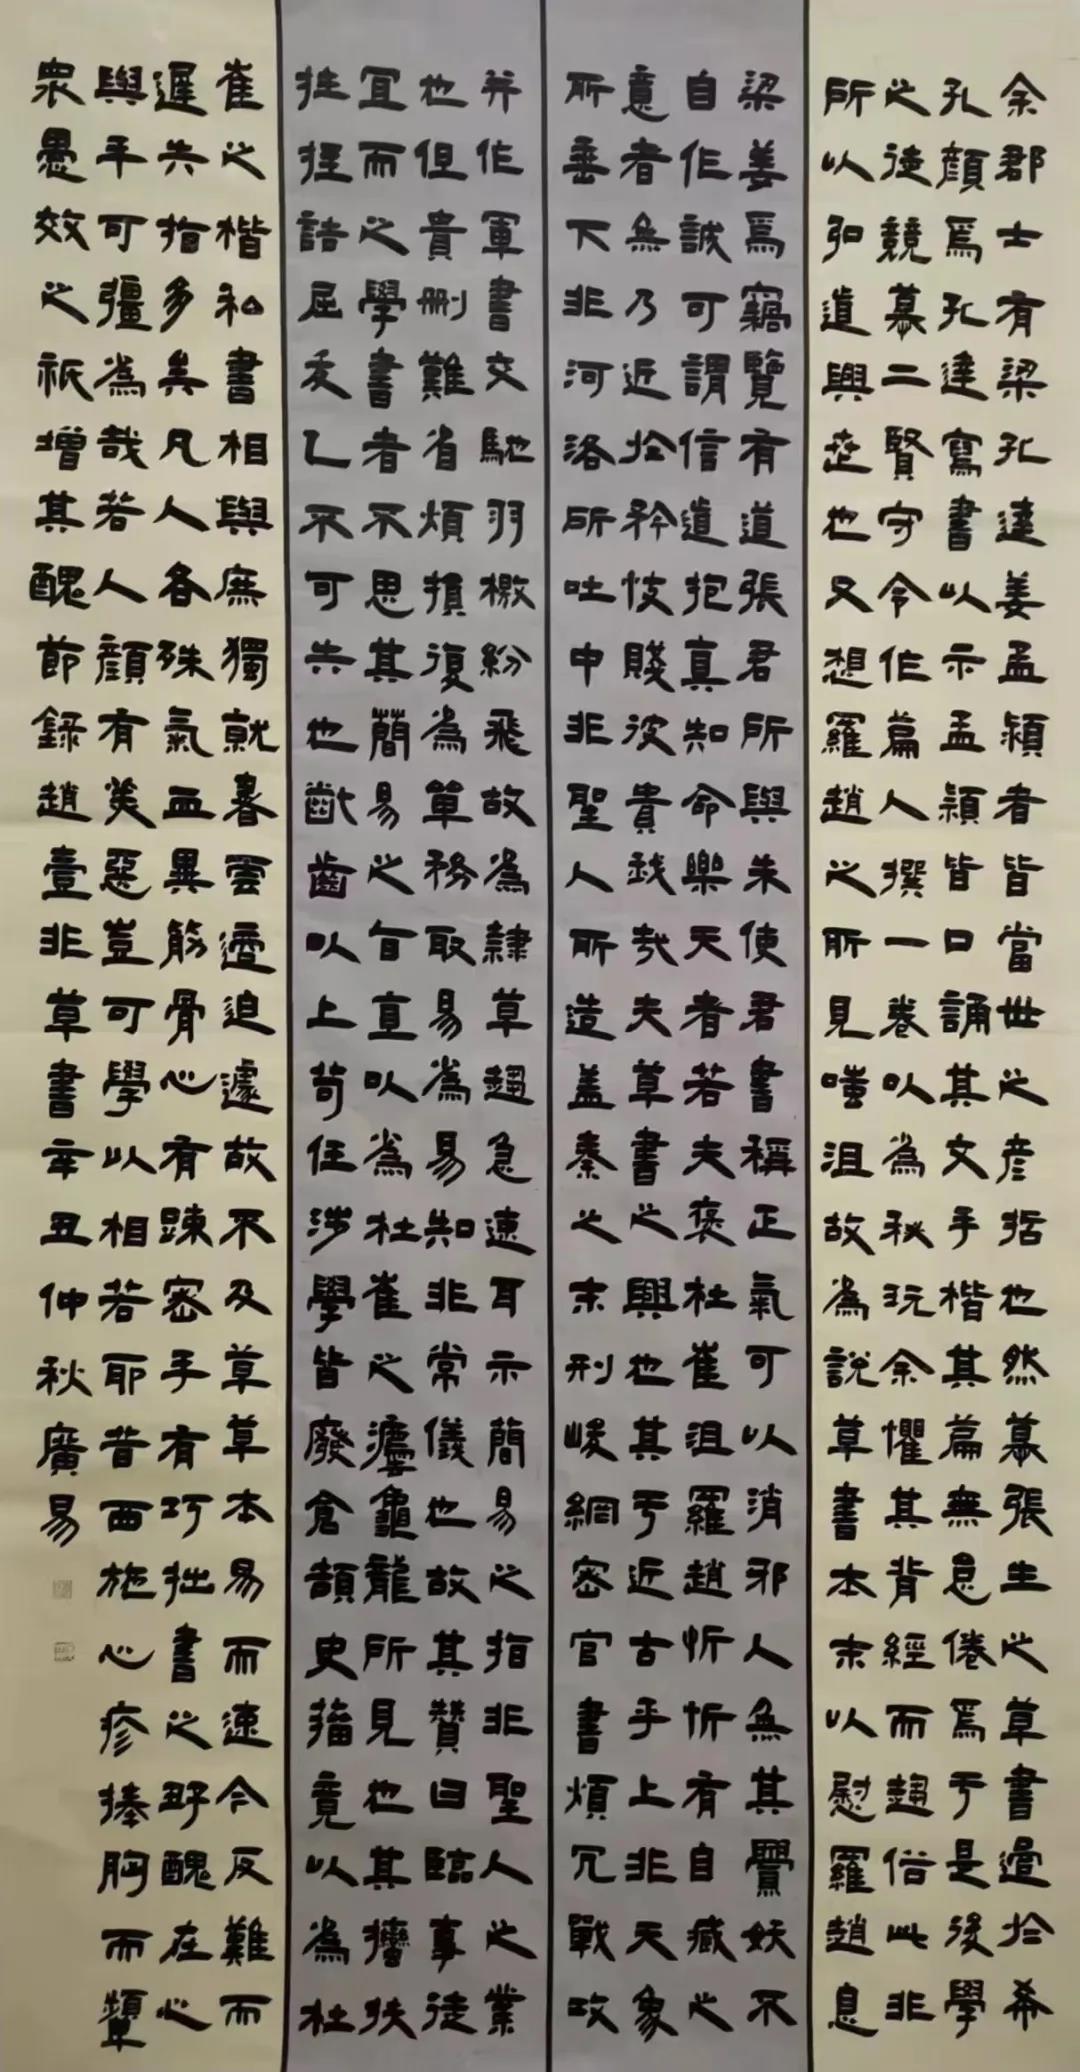 余郡士有梁孔達姜孟潁者皆當世之彥哲也然慕張生之草書過於希
孔顏焉孔達寫書以示孟潁皆口誦其文手楷其篇無怠倦焉于是後學
之徒競慕二賢守令作篇人撰一卷以為秘玩余懼其背經而趨俗此非
所以弘道興世也又想羅趙之所見嗤沮故為說草書本末以慰羅趙息
梁姜焉竊覽有道張君所與朱使君書稱正氣可以消邪人無其釁妖不
自作誠可謂信道抱真知命樂天者若夫褒杜崔沮羅趙忻忻有自臧之
意者無乃近於矜忮賤彼貴我哉夫草書之興也其于近古乎上非天象
所垂下非河洛所吐中非聖人所造蓋秦之末刑峻網密官書煩冗戰攻
并作軍書交馳羽檄紛飛故為隸草趨急速耳示簡易之指非聖人之業
也但貴刪難省煩損復為單務取易為易知非常儀也故其贊曰臨事徒
宜而之學書者不思其簡易之旨直以為杜崔之法龜龍所見也其㩻扶
拄挃詰屈犮乙不可失也齔齒以上苟任涉學皆廢倉頡史籀竟以為杜
崔之楷私書相與庶獨就書云適迫遽故不及草草本易而速今反難而
遲失指多矣凡人各殊氣血異筋骨心有疎密手有巧拙書之好醜在心
與手可彊為哉若人顏有美惡豈可學以相若耶昔西施心疹捧胸而顰
眾愚效之祇增其醜節錄趙壹非草書辛丑仲秋廣易